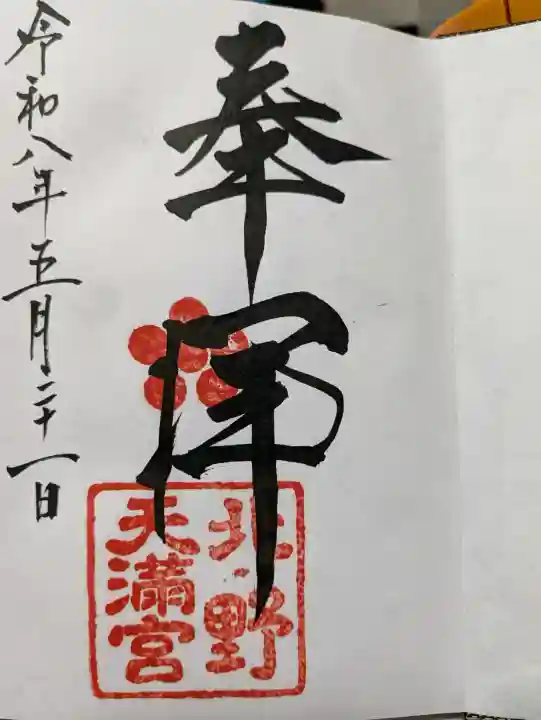 奉拝
北野
天満宮
令和八年五月二十一日